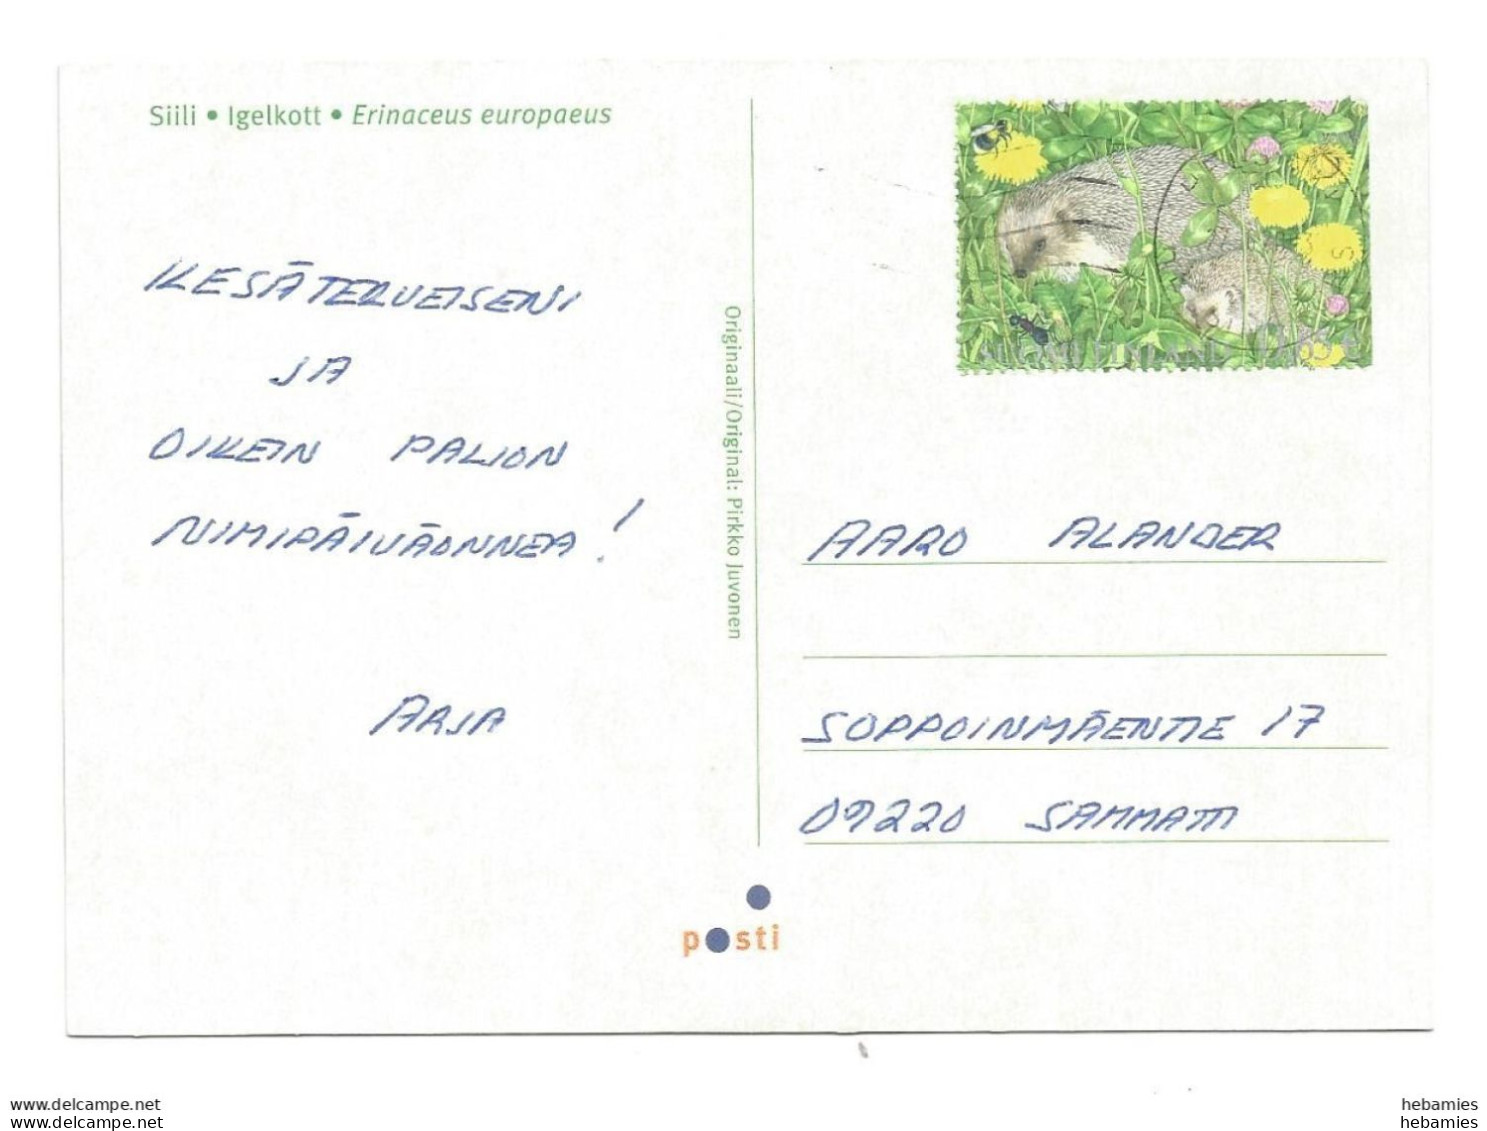 Siili • Igelkott • Erinaceus europaeus
KESÄTERVEISENI
JA
OIKEIN PALJON
NIMIPÄIVÄONNEA!
ARJA
Originaali/Original: Pirkko Juvonen
SUOMI FINLAND 0,65 €
AARO ALANDER
SOPPOINMÄENTIE 17
09220 SAMMATTI
posti
www.delcampe.net
www.delcampe.net
hebamies
hebamies